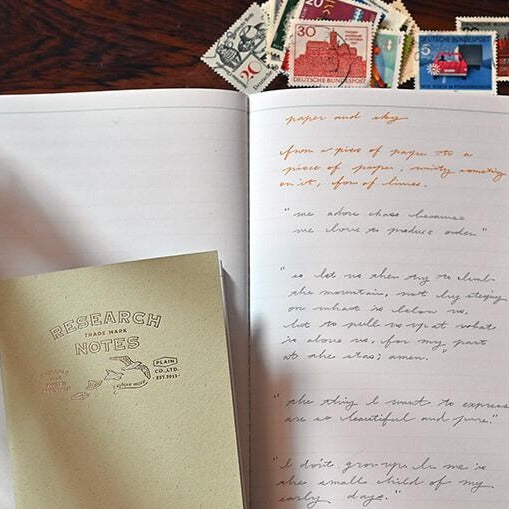 20
30
DEUTSCHE BUNDESPOST
5
DEUTSCHE BUNDESPOST
paper and sky
from a piece of paper to a
piece of paper, writing something
on it, form of lines.
"we adore chaos because
we love to produce order."
"so let us then try to climb
the mountain, not by stepping
on what is below us,
but to pull us up at what
is above us, for my part
at the stars; amen."
"the thing i want to express
are so beautiful and pure."
"i don't grow up. In me is
the small child of my
early days."
RESEARCH
TRADE MARK
NOTES
PLAIN
CO.,LTD.
EST.